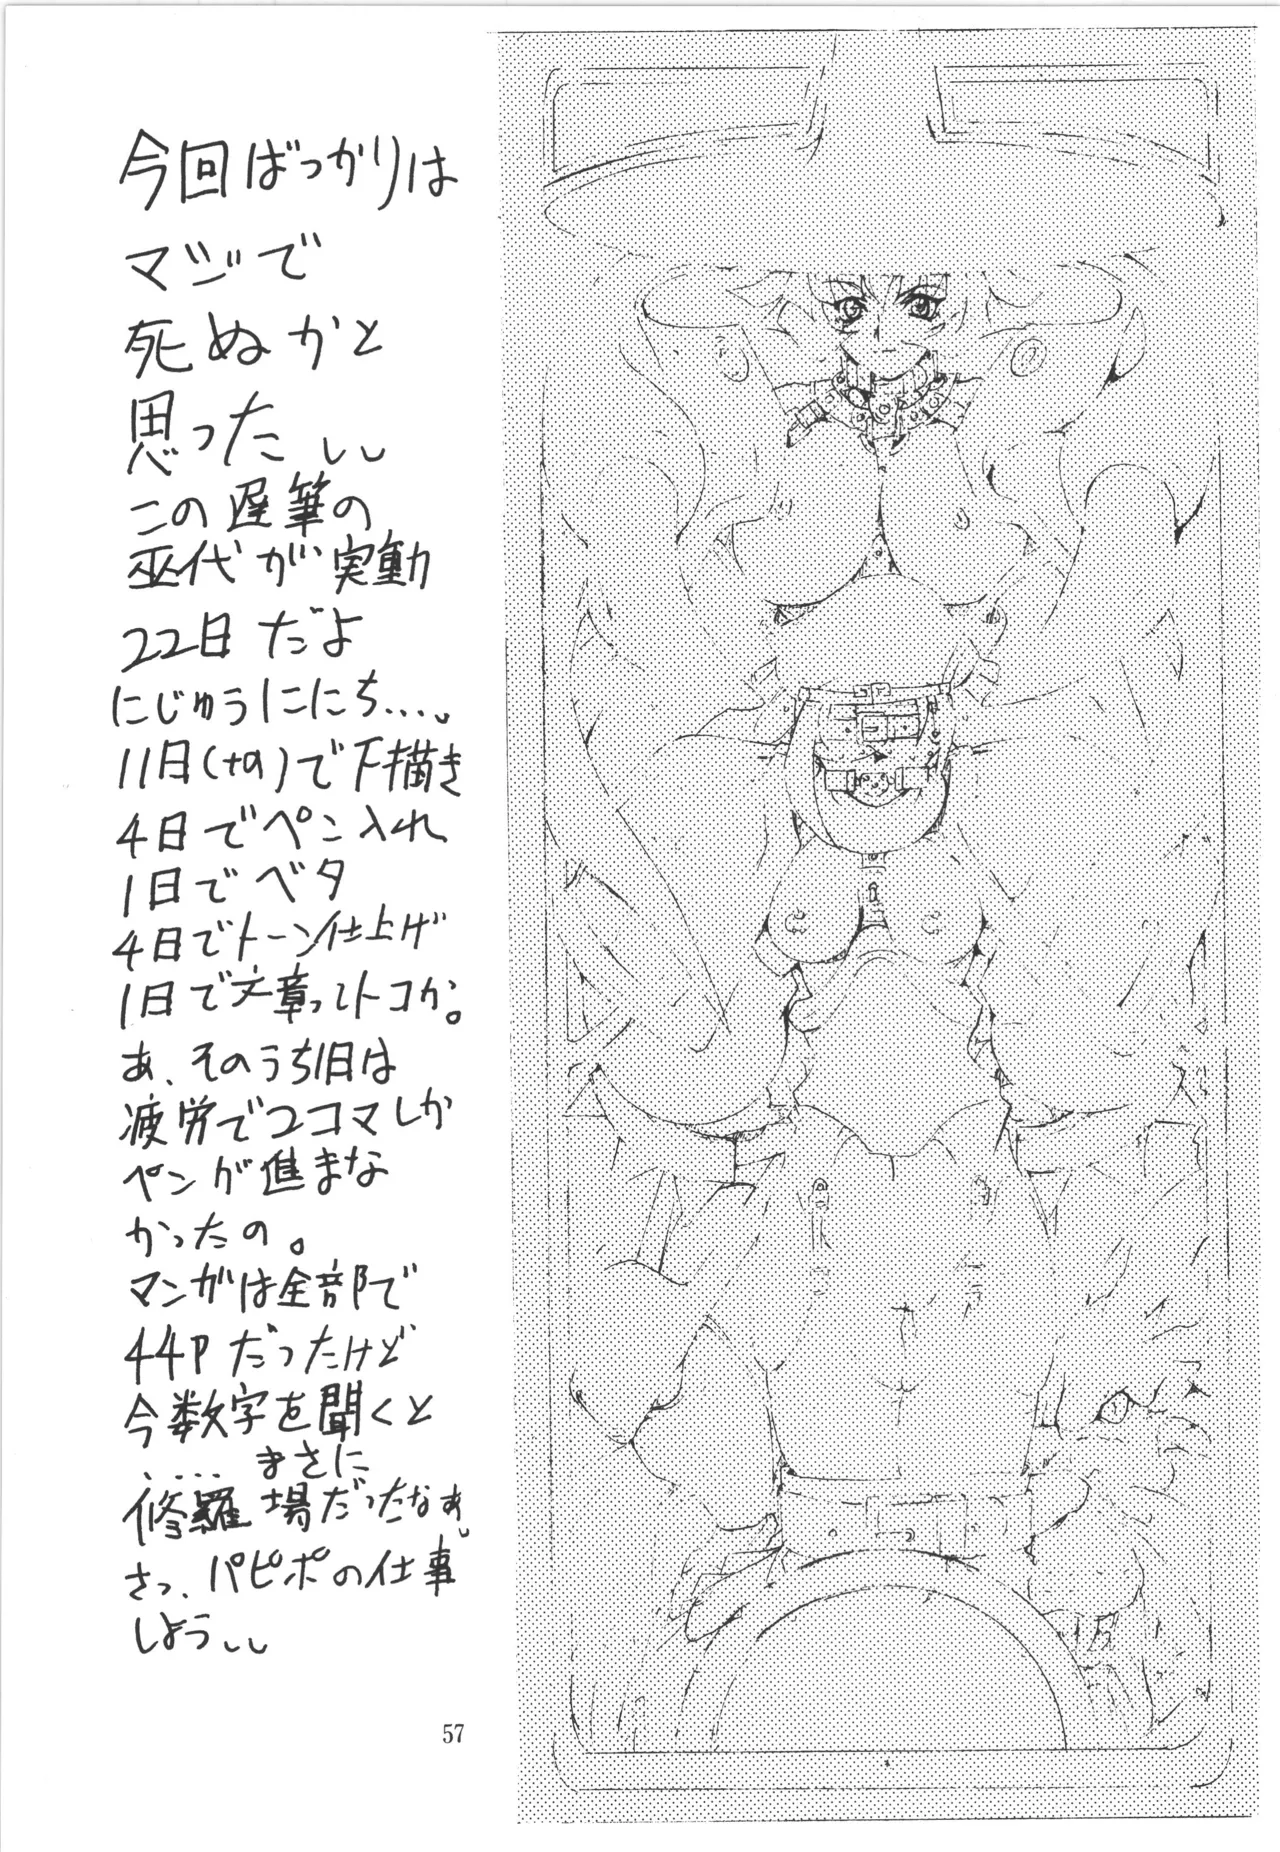 今回ばっかりは
マジで
死ぬかと
思った、、
この遅筆の
巫代が実動
22日だよ
にじゅうににち・・・。
11日(+α)で下描き
4日でペン入れ
1日でベタ
4日でトーン仕上げ
1日で文章ってトコか。
あ、そのうち1日は
疲労で2コマしか
ペンが進まな
かったの。
マンガは全部で
44Pだったけど
今数字を聞くと
・・・・まさに
修羅場だったなぁ。
さっ、パピポの仕事
しよう、、
57